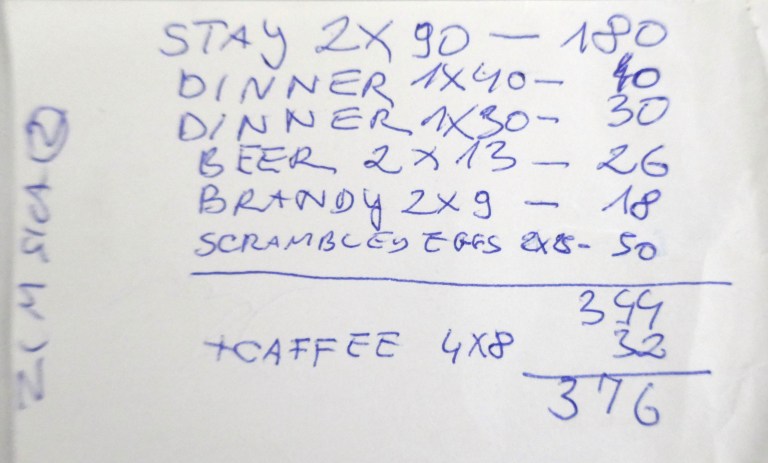 STAY 2X90 — 180
DINNER 1X40 — 40
DINNER 1X30 — 30
BEER 2X13 — 26
BRANDY 2X9 — 18
SCRAMBLED EGGS 2X25 - 50
344
+CAFFEE 4X8 32
376